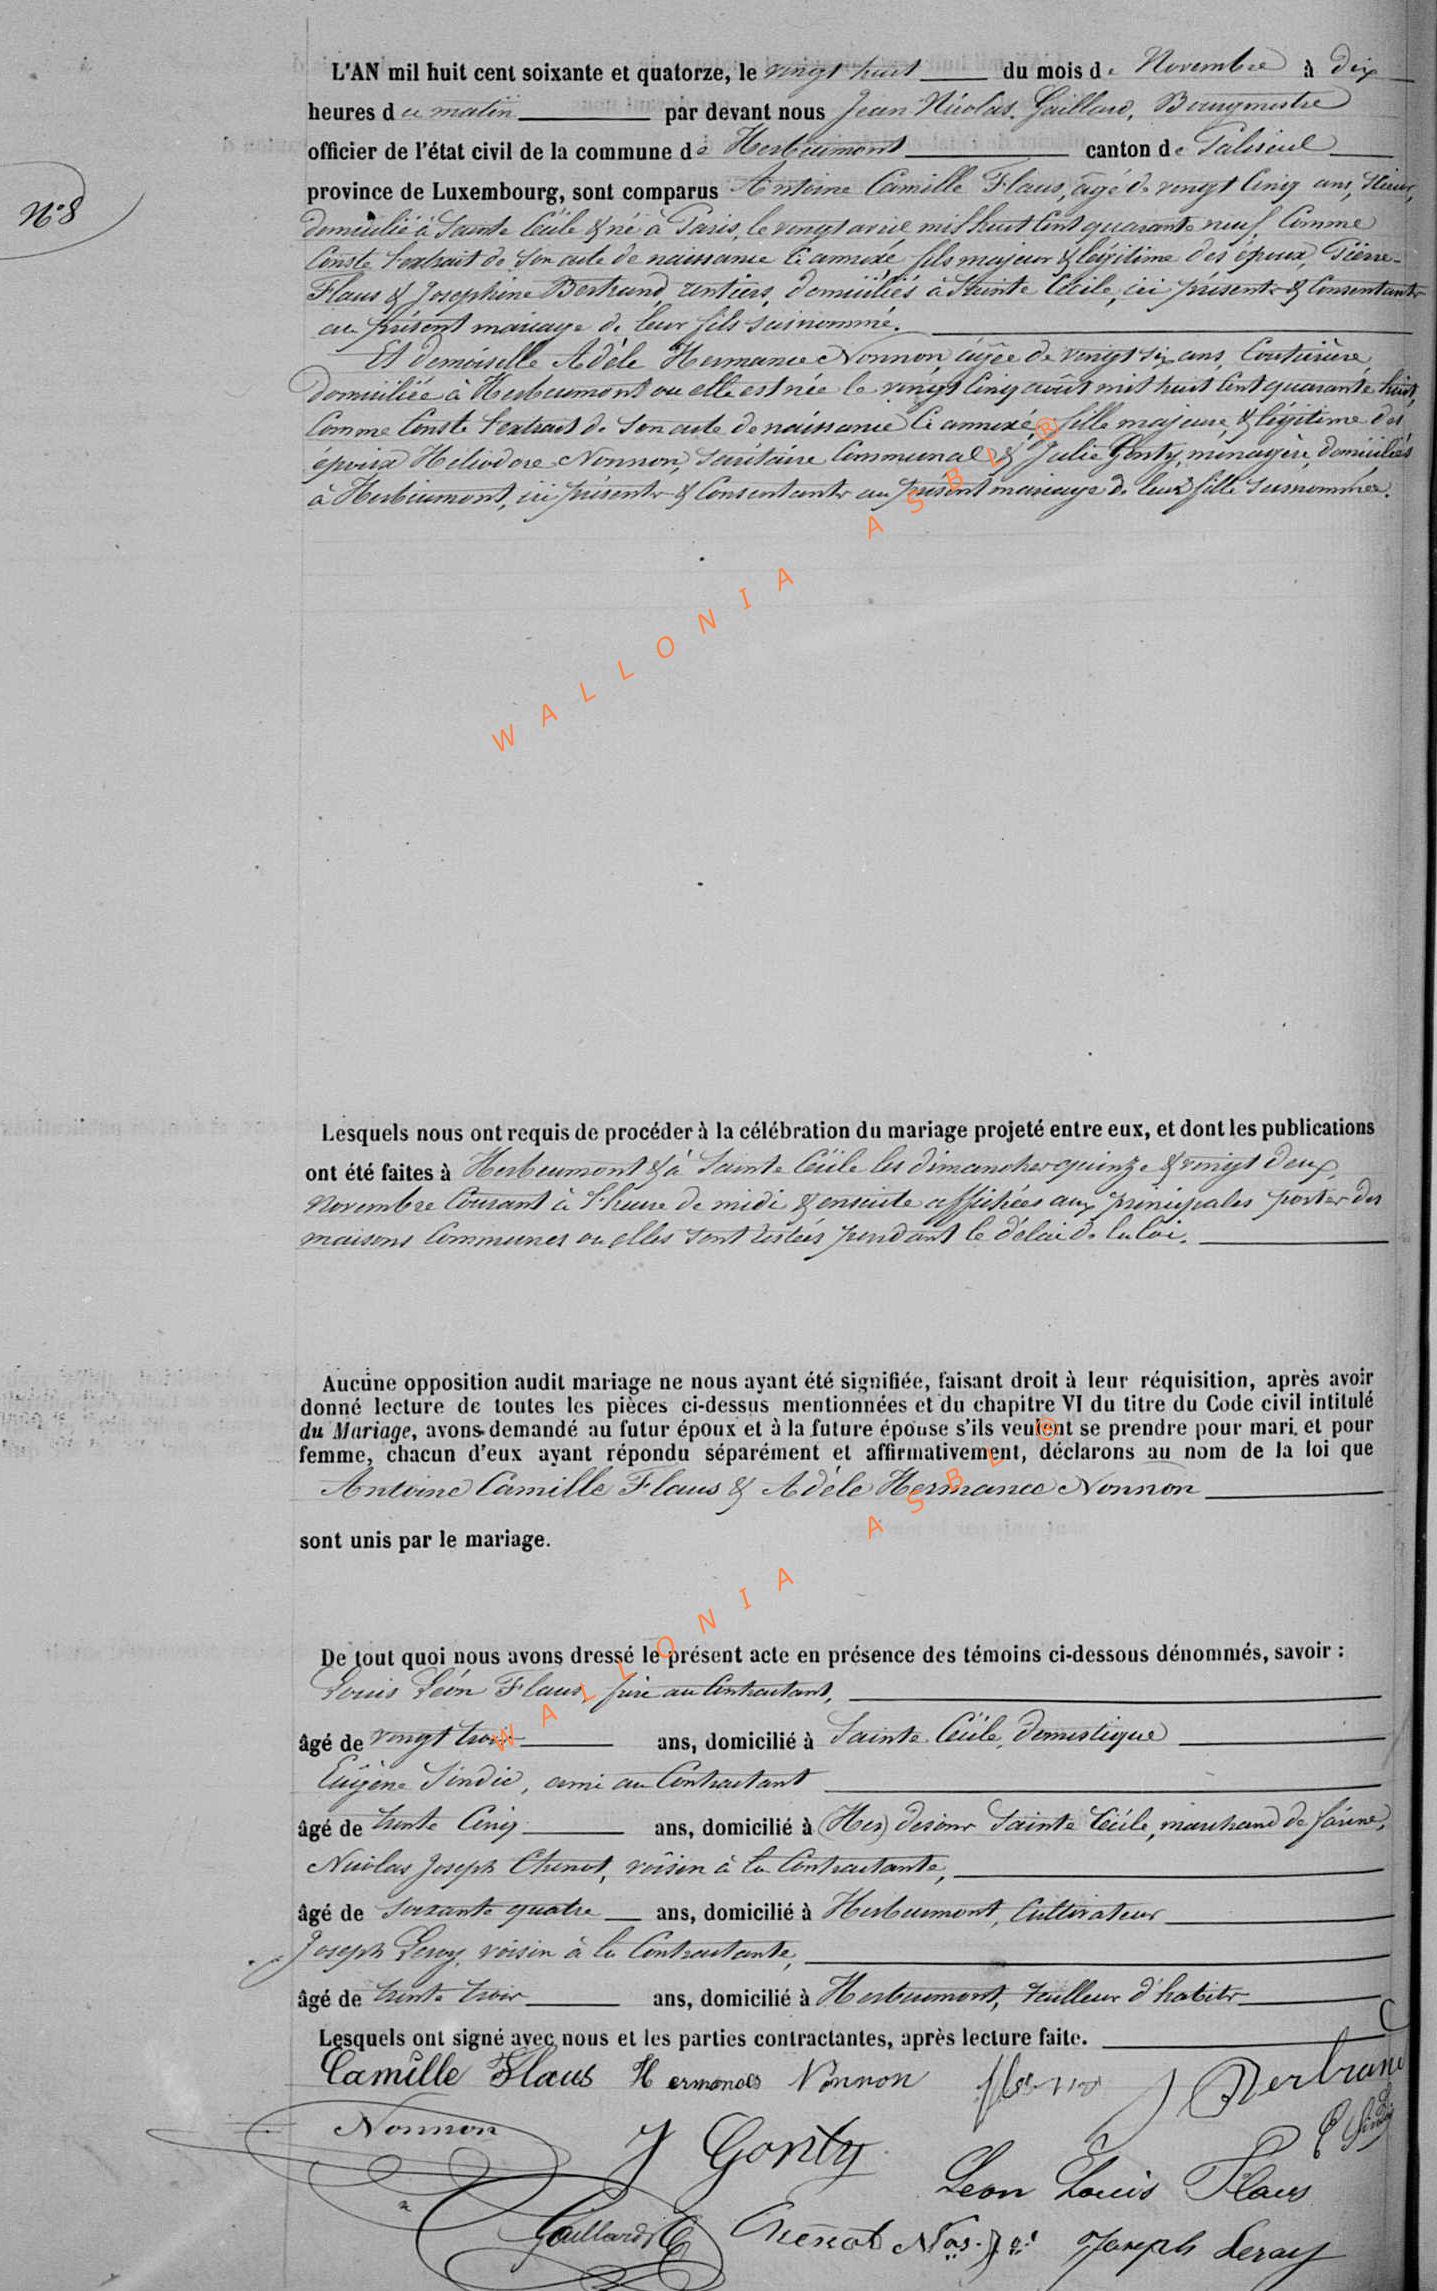 L'AN mil huit cent soixante et quatorze, le vingt huit du mois de Novembre à dix
heures du matin par devant nous Jean Nicolas Gaillard, Bourgmestre
officier de l'état civil de la commune de Herbeumont canton de Paliseul
N° 8
province de Luxembourg, sont comparus Antoine Camille Flaus, âgé de vingt cinq ans,
domicilié à Sainte Cécile & né à Paris, le vingt avril mil huit cent quarante neuf, comme
conste l'extrait de son acte de naissance ci annexé, fils majeur & légitime des époux, Pierre
Flaus & Josephine Bertrand, rentiers, domiciliés à Sainte Cécile, ici présents & consentants
au présent mariage de leur fils susnommé.
Et demoiselle Adèle Hermance Nonnon, âgée de vingt six ans, couturière
domiciliée à Herbeumont ou elle est née le vingt cinq août mil huit cent quarante huit,
comme conste l'extrait de son acte de naissance ci annexé, fille majeure & légitime des
époux Heliodore Nonnon, sécrétaire communal & Julie Gonty, ménagère, domiciliés
à Herbeumont, ici présents & consentants au présent mariage de leur fille susnommée.
WALLONIA ASBL ®
Lesquels nous ont requis de procéder à la célébration du mariage projeté entre eux, et dont les publications
ont été faites à Herbeumont & à Sainte Cécile les dimanches quinze & vingt deux
novembre courant à l'heure de midi & ensuite affichées aux principales portes des
maisons communes ou elles sont restées pendant le délai de la loi.
Aucune opposition audit mariage ne nous ayant été signifiée, faisant droit à leur réquisition, après avoir
donné lecture de toutes les pièces ci-dessus mentionnées et du chapitre VI du titre du Code civil intitulé
du Mariage, avons demandé au futur époux et à la future épouse s'ils veulent se prendre pour mari et pour
femme, chacun d'eux ayant répondu séparément et affirmativement, déclarons au nom de la loi que
Antoine Camille Flaus & Adèle Hermance Nonnon
sont unis par le mariage.
WALLONIA ASBL ®
De tout quoi nous avons dressé le présent acte en présence des témoins ci-dessous dénommés, savoir :
Louis Léon Flaus, frère au contractant,
âgé de vingt trois ans, domicilié à Sainte Cécile, domestique
Eugène Sindic, ami au contractant
âgé de trente cinq ans, domicilié à (Hes) desour Sainte Cécile, marchand de farine,
Nicolas Joseph Chenot, voisin à la contractante,
âgé de soixante quatre ans, domicilié à Herbeumont, cultivateur
Joseph Leroy, voisin à la contractante,
âgé de trente trois ans, domicilié à Herbeumont, tailleur d'habits
Lesquels ont signé avec nous et les parties contractantes, après lecture faite.
Camille Flaus Hermance Nonnon J Bertrand
Nonnon J Gonty E Sindic
Leon Louis Flaus
Gaillard Chenot Nas. Jos. Joseph Leroy